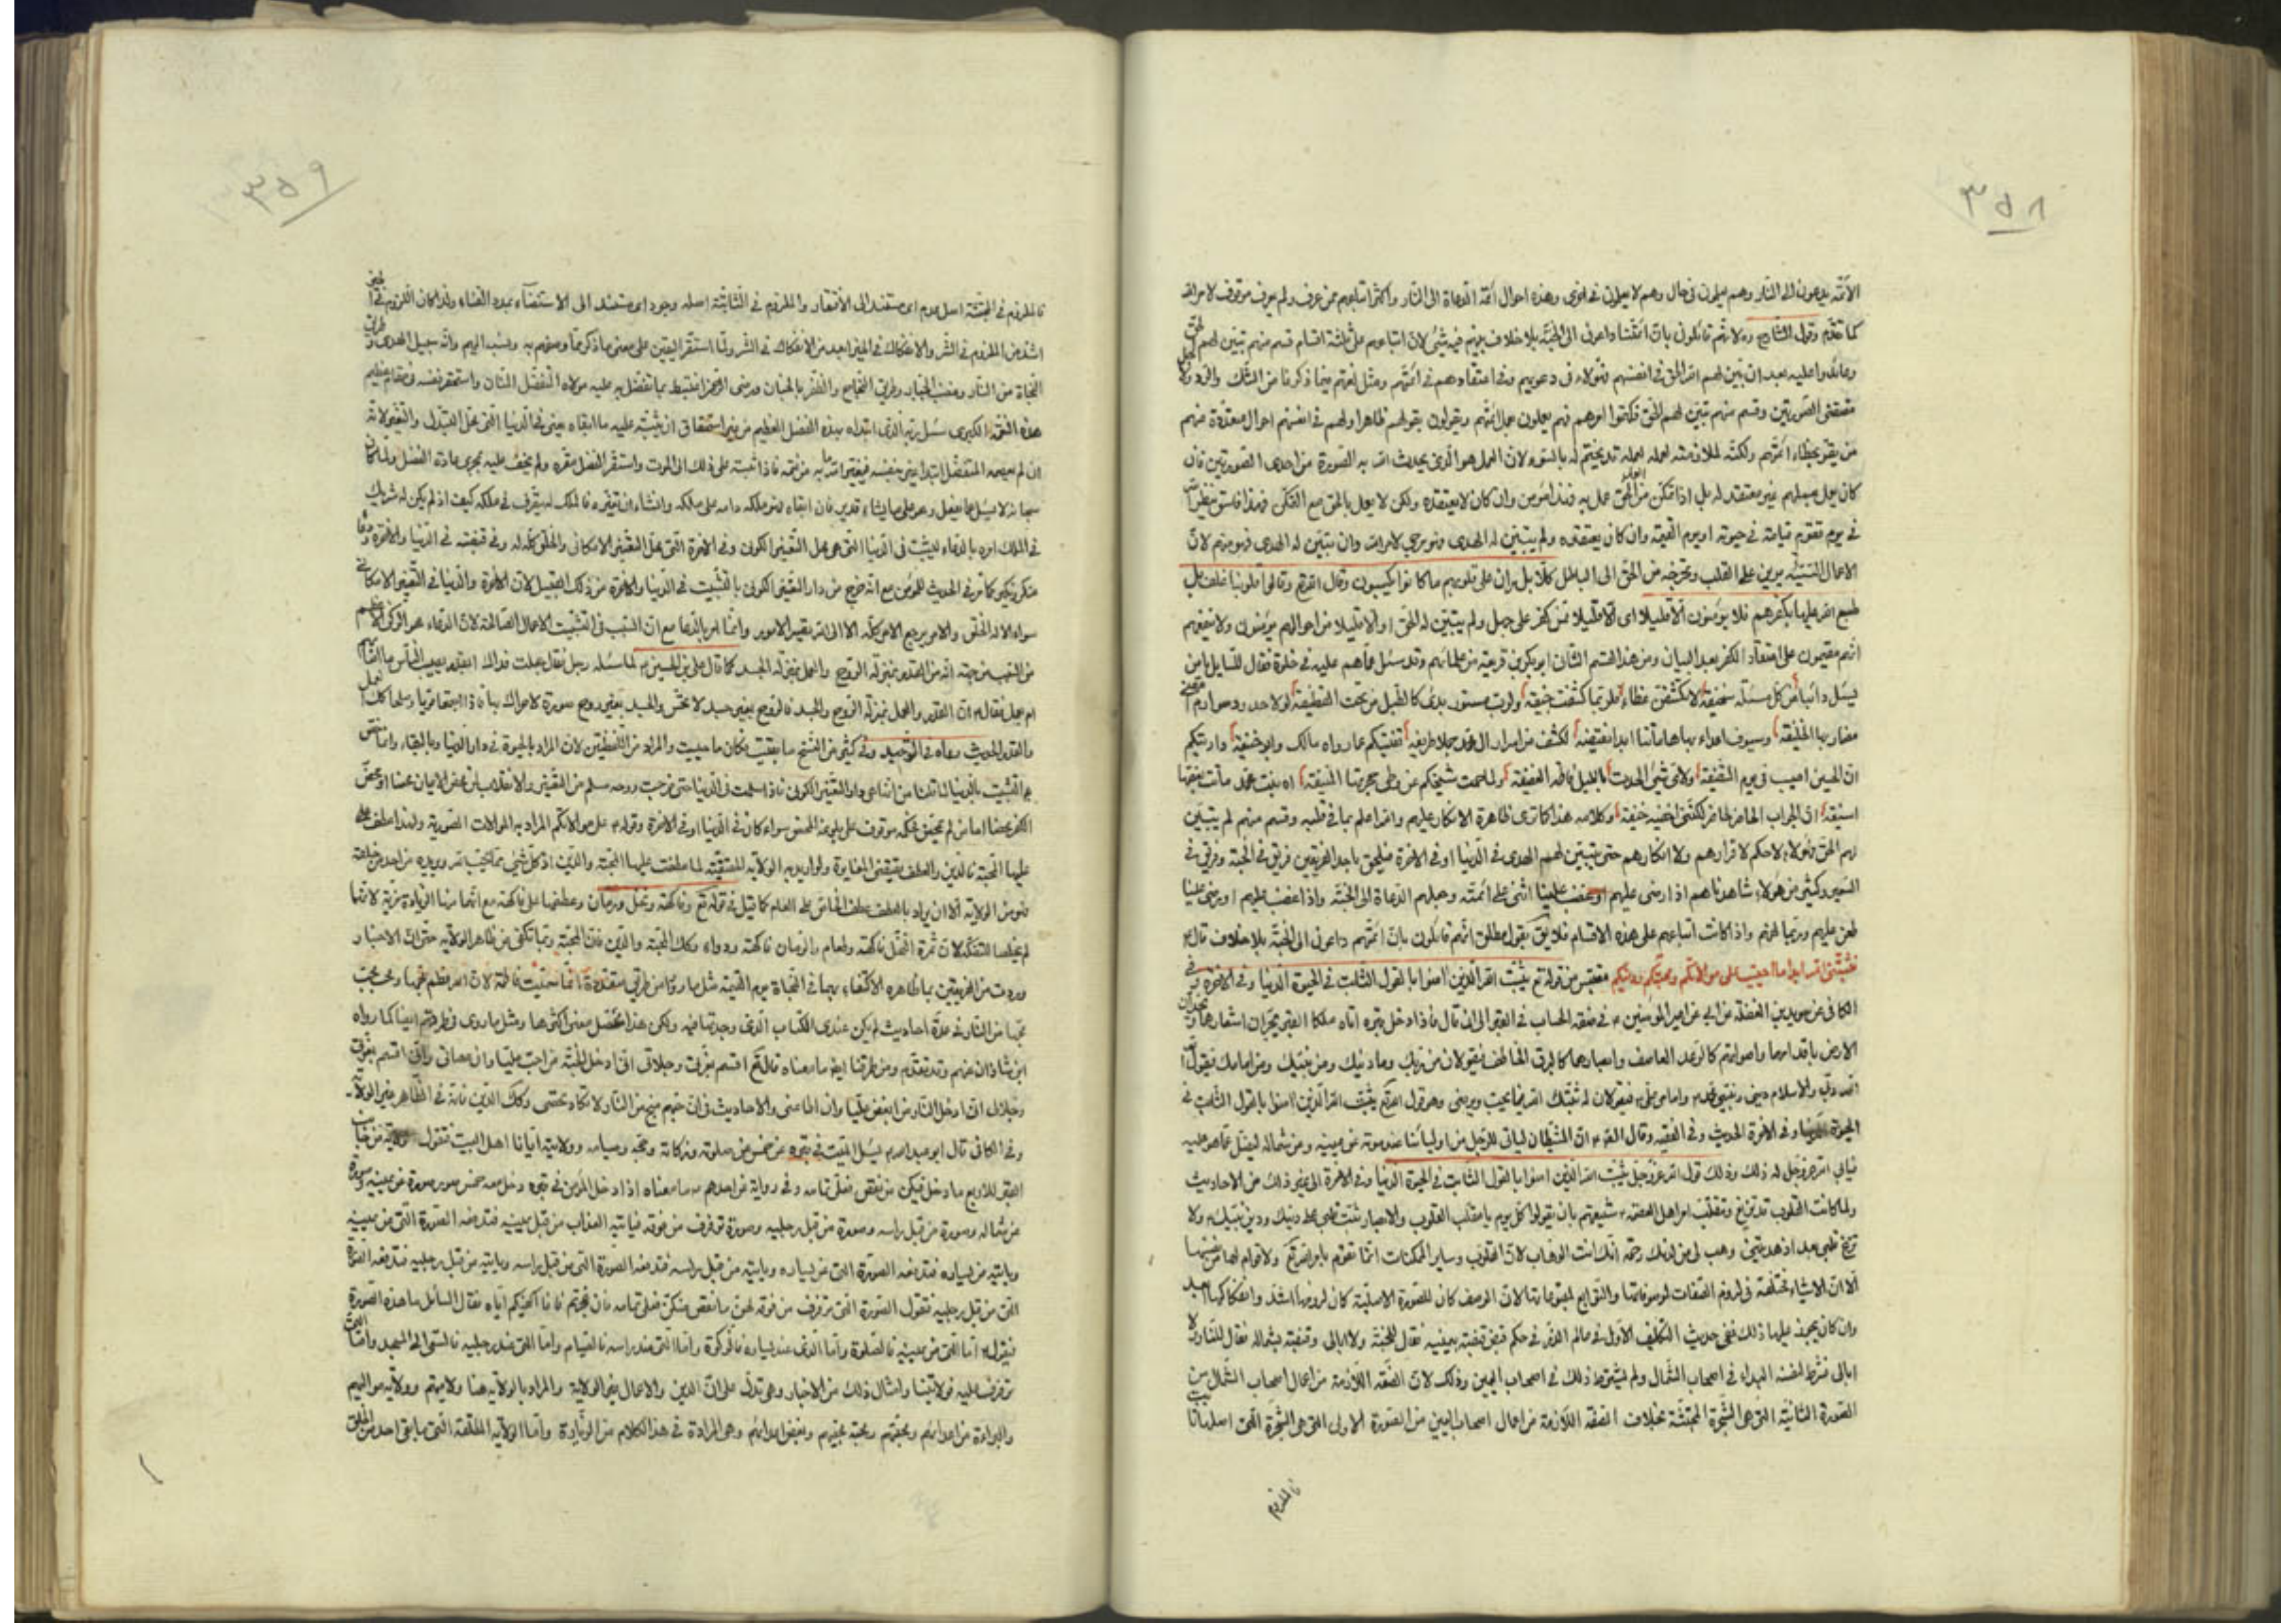 ٣٥٨
الأئمة يدعون الى النار وهم يعلمون في حال وهم لا يعلمون في اخرى وهذه احوال ائمة الدعاة الى النار واكثر اتباعهم ممن عرف ولم يعرف موقوف لامر الله
كما تقدم وقول الشارح ره لانهم قائلون بان ائمتنا داعون الى الجنة بلا خلاف بينهم فيه شئ لان اتباعهم على ثلثة اقسام قسم منهم تبين لهم الحق
وعاندوا عليه بعد ان تبين لهم امر الحق في انفسهم فهؤلاء في دعويهم وفي اعتقادهم في ائمتهم ومثل ائمتهم فيما ذكرنا من الشك والتردد
مقتضى الصورتين وقسم منهم تبين لهم الحق فكتموا امرهم فهم يعملون عمل ائمتهم ويقولون بقولهم ظاهرا ولهم في انفسهم احوال متعددة منهم
من يقر بخطاء ائمتهم ولكنه لملازمته لعمله لعمله قد يختم له بالسوء لان العمل هو الذي يحدث الله به الصورة من احدى الصورتين فان
كان يعمل بعملهم غير معتقد له بل اذا تمكن من العمل بالحق عمل به فهذا مؤمن وان كان لا يعتقده ولكن لا يعمل بالحق مع التمكن فهذا فاسق
في يوم فتقوم قيامته في حيوته او يوم القيمة وان كان يعتقده ولم يتبين له الهدى فهو مرجى لامر الله وان تبين له الهدى فهو منهم لان
الاعمال السيئة يرين على القلب وتخرجه من الحق الى الباطل كلا بل ران على قلوبهم ما كانوا يكسبون وقال تعالى وقالوا قلوبنا غلف بل
طبع الله عليها بكفرهم فلا يؤمنون الا قليلا اى الا قليلا ممن كفر على جهل ولم يتبين له الحق او الا قليلا من احوالهم يؤمنون ولا ينفعهم
انهم مقيمون على اعتقاد الكفر بعد البيان ومن هذا القسم الثاني ابو بكر بن قريعة من علمائهم وقد سئل عما هم عليه في خلوة فقال للسايل يا من
يسئل دائبا عن كل مسئلة سخيفة لا تكشفن غطاء فلربما كشفت جيفة ولرب مستور بدى كالطبل من تحت القطيفة لولا حدود صوارم
مضاربها الخليفة وسيوف اعداء بها هاماتنا ابدا نقيفة لكشفت من اسرار ال محمد جملا طريفة تغنيكم عما رواه مالك وابو حنيفة واريتكم
ان الحسين اصيب في يوم السقيفة ولاى شئ الحدت بالليل فاطمة العفيفة ولما حمت شيخيكم عن وطى حجرتها المنيفة اه لبنت محمد ماتت بغصتها
اسيفة ان الجواب لحاضر لكنني اخفيه خيفة وكلامه هذا كما ترى ظاهره الانكار عليهم والله اعلم بما في قلبه وقسم منهم لم يتبين
لهم الحق فهؤلاء لا حكم لاقرارهم ولا انكارهم حتى يتبين لهم الهدى في الدنيا او في الاخرة فيلحق باحد الفريقين فريق في الجنة وفريق في
السعير وكثير من هؤلاء شاهدناهم اذا رضى عليهم او غضب علينا اثنى على ائمته وجعلهم الدعاة الى الجنة واذا غضب عليهم او رضى علينا
طعن عليهم وربما لعنهم واذا كانت اتباعهم على هذه الاقسام فلا يليق بقول مطلق انهم قائلون بان ائمتهم داعون الى الجنة بلا خلاف قال
فثبتني الله ابدا ما حييت على موالاتكم ومحبتكم ودينكم مقتبس من قوله تع يثبت الله الذين امنوا بالقول الثابت في الحيوة الدنيا وفي الاخرة
الكافي عن سويد بن الغفلة عن امير المؤمنين ع في صفة الحساب في القبر الى ان قال فاذا دخل قبره اتاه ملكا القبر يجران اشعارهما
الارض باقدامهما واصواتهم كالرعد القاصف وابصارهما كالبرق الخاطف فيقولان من ربك وما دينك ومن نبيك ومن امامك فيقول
الله ربي والاسلام ديني ونبيي محمد وامامي علي فيقولان له ثبتك الله فيما يحب ويرضى وهو قول الله تع يثبت الله الذين امنوا بالقول الثابت في
الحيوة الدنيا وفي الاخرة الحديث وفي الفقيه وقال الصادق ان الشيطان لياتي الرجل من اوليائنا عند موته عن يمينه وعن شماله ليضله عما هو عليه
فيابى الله عز وجل له ذلك وذلك قول الله عز وجل يثبت الله الذين امنوا بالقول الثابت في الحيوة الدنيا وفي الاخرة الى غير ذلك من الاحاديث
ولما كانت القلوب قد تزيغ وتقلب امر اهل العصمة ع شيعتهم بان يقولوا كل يوم يا مقلب القلوب والابصار ثبت قلبي على دينك ودين نبيك ولا
تزغ قلبي بعد اذ هديتني وهب لي من لدنك رحمة انك انت الوهاب لان القلوب وساير الممكنات انما تقوم بامر الله تع ولا قوام لها من نفسها
الا ان الاشياء مختلفة في لزوم الصفات لموصوفاتها والتوابع لمتبوعاتها لان الوصف كان للصورة الاصلية كان لزومها اشد وانفكاكها ابعد
وان كان يجوز عليها ذلك ففي حديث التكليف الاول في عالم الذر في حكم قبض قبضة بيمينه فقال للجنة ولا ابالي وقبضة بشماله فقال للنار ولا
ابالي فشرط لنفسه البداء في اصحاب الشمال ولم يشترط ذلك في اصحاب اليمين وذلك لان الصفة اللازمة من اعمال اصحاب الشمال من
الصورة الثانية التي هي الشجرة المجتثة بخلاف الصفة اللازمة من اعمال اصحاب اليمين من الصورة الاولى التي هي الشجرة التي اصلها ثابت
فاللزوم
٣٥٩
فاللزوم في المجتثة اصله عدم اى مستند الى الافتقار واللزوم في الثابتة اصله وجود اى مستند الى الاستغناء بمدد الغناء ولذا كان اللزوم في الخير
اشد من اللزوم في الشر والانفكاك في الخير ابعد من الانفكاك في الشر ولما استقر اليقين على معنى ما ذكر مما وصفهم به ونسب اليهم وانه سبيل الهدى وطريق
النجاة من النار وغضب الجبار وطريق النجاح والظفر بالجنان ورضى الرحمن اغتبط بما تفضل به عليه مولاه المتفضل المنان واستحقر نفسه في مقام عظيم
هذه النعمة الكبرى سئل ربه الذي ابتداه بهذه الفضل العظيم من غير استحقاق ان يثبته عليه ما ابقاه يعني في الدنيا التي محل التبدل والتغير لانه
ان لم يعصمه المتفضل ابتداء غير بنفسه فيغير الله ما به من نعمه فاذا ثبته على ذلك الى الموت واستقر الفضل مقره ولم يخف عليه تجرى عادة الفضل ولما كان
سبحانه لا يسئل عما يفعل وهو على ما يشاء قدير فان ابقاه فهو ملكه دام على ملكه وان شاء ان يغيره فالملك له يتصرف في ملكه كيف اذ لم يكن له شريك
في الملك امره بالدعاء ليثبت في الدنيا التي هي محل التغير الكوني وفي الاخرة التي محل التغير الامكاني والخلق كله له وفي قبضته في الدنيا والاخرة
منكر ونكير كما مر في الحديث للمؤمن مع انه خرج من دار التغير الكوني بالتثبيت في الدنيا والاخرة من ذلك القبيل لان الاخرة والدنيا في التغير الامكاني
سواء الا له الخلق والامر يرجع الامر كله الا الى الله تصير الامور وانما امر بالدعا مع ان السبب في التثبيت الاعمال الصالحة لان الدعاء هو الركن الاعظم
من السبب من جهة انه من القدر بمنزلة الروح والعمل بمنزلة الجسد كما قال علي بن الحسين ع لما سئله رجل فقال جعلت فداك ابقدر يصيب الناس ما اصابهم
ام بعمل فقال ع ان القدر والعمل بمنزلة الروح والجسد فالروح بغير جسد لا تحس والجسد بغير روح صورة لا حراك بها فاذا اجتمعا قويا وصلحا كذلك العمل
والقدر الحديث رواه في التوحيد وفي كثير من النسخ ما بقيت مكان ما حييت والمراد من اللفظين لان المراد بالحيوة في دار الدنيا وبالبقاء
التثبيت بالدنيا لما قلنا من انها هي دار التغير الكوني فاذا سلمت في الدنيا حتى خرجت روحه سلم من التغير والانقلاب لمن محض الايمان محضا او محض
الكفر محضا اما من لم يتحقق فحكمه موقوف على بلوغه المحض سواء كان في الدنيا او في الاخرة وقوله ع على موالاتكم المراد به الموالات الصورية ولهذا عطف على
عليها المحبة فالدين والعطف يقتضى المغايرة ولو اريد به الولاية الحقيقية لما عطفت عليها المحبة والدين اذ كل شئ مما يحب الله ويريده من احد من خلقه
فهو من الولاية الا ان يراد بالعطف عطف الخاص على العام كما قيل في قوله تع وفاكهة ونخل ورمان وعطفهما على فاكهة مع انهما منها لزيادة مزية لانهما
لم يخلصا للتفكه لان ثمرة النخل فاكهة وطعام والرمان فاكهة ودواء وكذلك المحبة والدين فان المحبة ربما تكفى عن ظاهر الولاية حتى ان الاخبار
وردت من الفريقين بما ظاهره الاكتفاء بها في النجاة يوم القيمة مثل ما روى من طرق متعددة انما سميت فاطمة لان الله فطم محبها ومحب محب
محبها من النار في عدة احاديث لم يكن عندي الكتاب الذي وجدتها فيه ولكن هذا محصل معنى اكثرها ومثل ما روى من طرقهم ايضا كما رواه
ابن شاذان عنهم وقد تقدم ومن طرقنا ايضا ما معناه قال تع اقسم بعزتي وجلالي اني ادخل الجنة من احب عليا وان عصاني واني اقسم بعزتي
وجلالي اني ادخل النار من ابغض عليا وان اطاعني والاحاديث في ان حبهم ينجي من النار لا تكاد تحصى وكذلك الدين فانه في الظاهر غير الولاية
وفي الكافي قال ابو عبد الله ع يسئل الميت في قبره عن خمس عن صلوته وزكاته وحجه وصيامه وولايته ايانا اهل البيت فتقول الولاية من جانب
القبر للاربع ما دخل فيكن من نقص فعلى تمامه وفي رواية عن احدهم ع ما معناه اذا دخل المؤمن في قبره دخل معه خمس صور صورة عن يمينه وصورة
عن شماله وصورة من قبل راسه وصورة من قبل رجليه وصورة ترفرف من فوقه فياتيه العذاب من قبل يمينه فتدفعه الصورة التي عن يمينه
وياتيه عن يساره فتدفعه الصورة التي عن يساره وياتيه من قبل راسه فتدفعه الصورة التي من قبل راسه وياتيه من قبل رجليه فتدفعه الصورة
التي من قبل رجليه فتقول الصورة التي ترفرف من فوقه لهن ما نقص منكن فعلى تمامه فان عجزتم فانا اكفيكم اياه فقال السائل ما هذه الصورة
فيقول ع اما التي عن يمينه فالصلوة واما الذي عند يساره فالزكوة واما التي عند راسه فالصيام واما التي عند رجليه فالسعي الى المسجد واما التي
ترفرف عليه فولايتنا وامثال ذلك من الاخبار وهي تدل على ان الدين والاعمال غير الولاية والمراد بالولاية هنا ولايتهم وولاية مواليهم
والبراءة من اعدائهم ومحبتهم ومحبة محبيهم وبغض اعدائهم وهي المرادة في هذا الكلام من الزيارة واما الولاية المطلقة التي ما بقى احد من الخلق